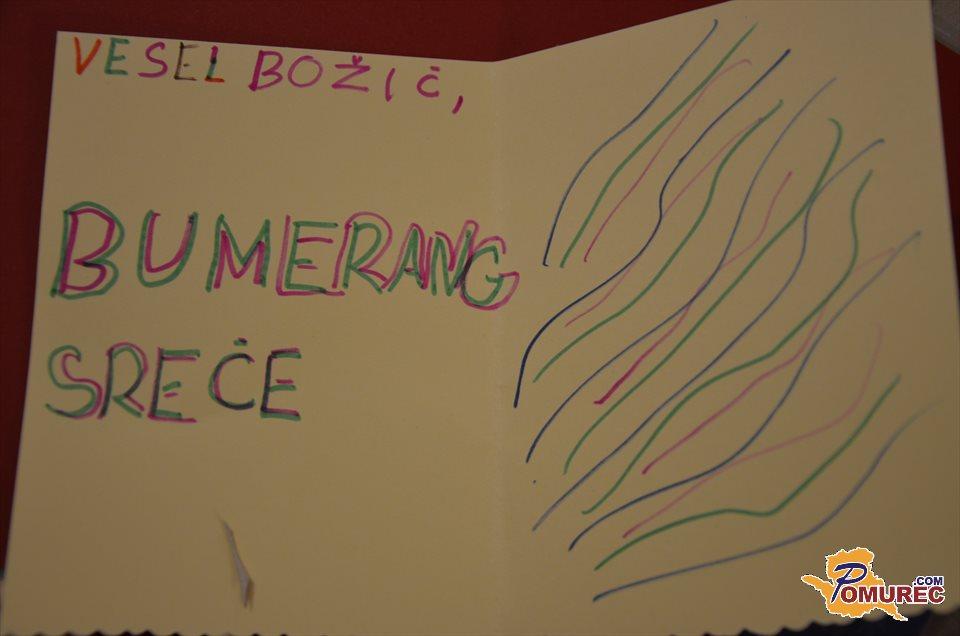 VESEL BOŽIČ,
BUMERANG
SREČE
POMUREC.COM